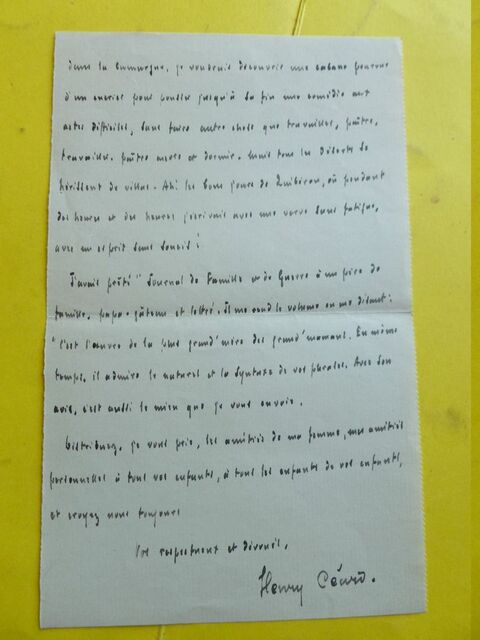 dans la Camargue, je voudrais découvrir une cabane pourvue
d'un encrier pour pousser jusqu'à sa fin une comédie aux
actes difficiles, sans faire autre chose que travailler, paître,
travailler, paître encore et dormir. Mais tous les déserts se
hérissent de villas. Ah! les bons jours de Quiberon, où pendant
des heures et des heures j'écrivais avec une verve sans fatigue,
avec un esprit sans souci!
J'avais prêté "Journal de Famille et de Guerre à un père de
famille, papa-gâteau et lettré. Il me rend le volume en me disant:
"c'est l'œuvre de la plus grand'mère des grand'mamans. En même
temps, il admire le naturel et la syntaxe de vos phrases. Avec son
avis, c'est aussi le mien que je vous envoie.
Distribuez, je vous prie, les amitiés de ma femme, mes amitiés
personnelles à tous vos enfants, à tous les enfants de vos enfants,
et croyez nous toujours
Vos respectueux et dévoués.
Henry Céard.